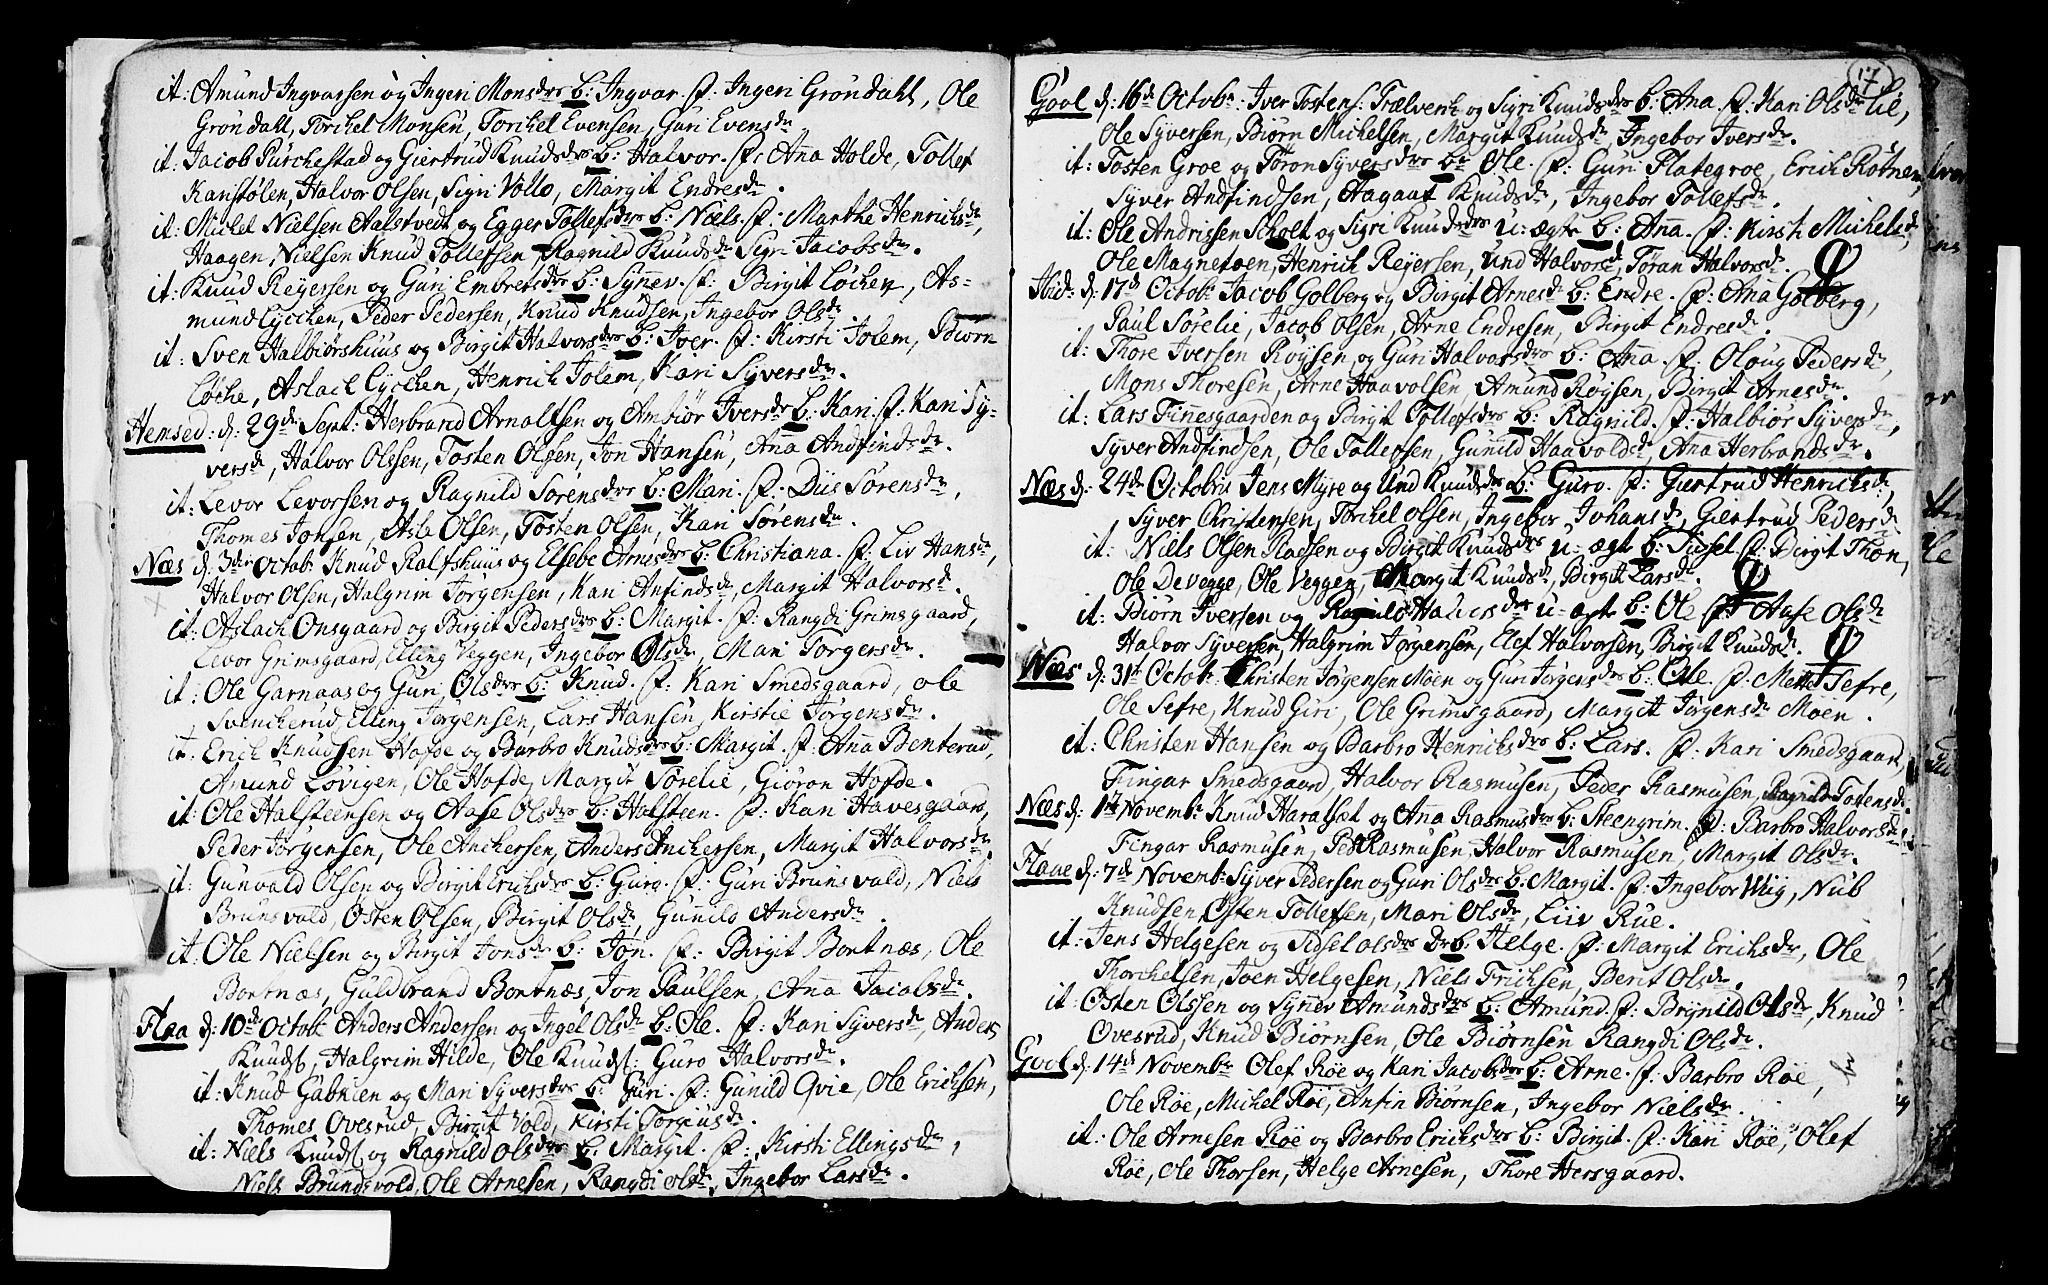 it: Amund Ingvarsen og Ingeri Monsdrs b: Ingvar. f: Ingeri Grøndahl, Ole
Grøndall, Torchel Monsen, Torchel Evensen, Guri Evensdr
it: Jacob Purchestad og Giertrud Knudsdrs b: Halvor. f: Anna Holde, Tollef
Kanstølen, Halvor Olsen, Sigri Vollo, Margit Endresdr.
it: Michel Nielsen Aalstvedt og Egger Tollefsdrs b: Niels. f: Marthe Henrichsdr,
Haagen Nielsen Knud Tollefsen, Ragnild Knudsdr Sigri Jacobsdr.
it: Knud Reyersen og Guri Embretsdrs b: Synev. f: Birgit Løchen, As-
mund Lycchen, Peder Pedersen, Knud Knudsen, Ingebor Olsdr
it: Sven Halbiørshuus og Birgit Halvorsdrs b: Iver. f: Kirsti Jolem, Biørn
Løche, Aslach Lycchen, Henrich Jolem, Kari Syversdr.
Hemsed: d: 29de Sept: Herbrand Arnaltsen og Ambiør Iversdr b: Kari. f: Kari Sy-
versdr, Halvor Olssen, Tosten Olsen, Jon Hansen, Anna Andfindsdr.
it: Levor Levorsen og Ragnild Sørensdrs b: Mari. f: Diis Sørensdr,
Thomes Jonsen, Asle Olsen, Tosten Olsen, Kari Sørensdr.
Næs d: 3die Octob: Knud Ralfshuus og Elsebe Arnesdrs b: Christiana. f: Liv Hansdr,
Halvor Olsen, Halgrim Jørgensen, Kari Anfindsdr, Margit Halvorsdr.
it: Aslach Onsgaard og Birgit Pedersdrs b: Margit. f: Rangdi Grimsgaard,
Levor Grimsgaard, Elling Veggen, Ingebor Olsdr, Mari Torgersdr.
it: Ole Garnaas og Guri Olsdrs b: Knud. f: Kari Smedsgaard, ole
Svenckerud, Elling Jørgensen, Lars Hansen, Kirstie Jørgensdr.
it: Erich Knudsen Hofde og Barbro Knudsdrs b: Margit. f: Anna Benterud,
Amund Lovigen, Ole Hofde, Margit Sørelie, Giøron Hofde.
it: Ole Halsteensen og Aase Olsdrs b: Halsteen. f: Kari Havesgaard,
Peder Jørgensen, Ole Anckersen, Anders Anckersen, Margit Halvorsdr.
it: Gunvald Olsen og Birgit Erichsdrs b: Guro. f: Guri Brunsvald, Niels
Brunsvald, Osten Olsen, Birgit Olsdr, Gunild Andersdr.
it: Ole Nielsen og Birgit Jonsdr b: Jon. f: Birgit Bortnæs, Ole
Bortnæs, Guldbrand Bortnæs, Jon Paulsen, Anna Jacobsdr.
Flaa d: 10de Octobr Anders Andersen og Ingel Olsdr b: Ole. f: Kari Syversdr, Anders
Knuds, Halgrim Hilde, Ole Knuds: Guro Halvorsdr.
it: Knud Gabrien og Mari Syversdrs b: Guri. f: Gunild Qvie, Ole Erichsen,
Thomes Ovesrud, Birgit Vold, Kirsti Torgiusdr.
it: Niels Knuds og Ragnild Olsdrs b: Margit. f: Kirsti Ellingsdr,
Niels Brundsvold, Ole Arnesen, Rangdi olsdr, Ingebor Larsdr.
17
Gool d: 16de Octobr: Iver Tostens: Trælverch og Sigri Knudsdrs b: Ana. f: Kari Olsdr Lie,
Ole Syversen, Biørn Michelsen, Margit Knudsdr, Ingebor Iversdr.
it: Tosten Groe og Tøron Syversdrs b: Ole. f: Guri Plategroe, Erich Rotnem,
Syver Andfindsen, Aagaat Knudsdr, Ingebor Tollefsdr.
it: Ole Andrissen Scholt og Sigri Knudsdrs u: ægte b: Anna. f: Kirsti Michelsdr,
Ole Magnetøen, Henrich Reyersen, Und Halvorsdr, Tøran Halvorsdr.
Ibid: d: 17de Octob: Jacob Golberg og Birgit Arnesdr b: Endre. f: Ana Golberg,
Paul Sørelie, Jacob Olsen, Arne Endresen, Birgit Endresdr.
it: Thore Iversen Røysen og Guri Halvorsdrs b: Anna. f: Oloug Pedersdr,
Mons Thoresen, Arne Haavolsen, Amund Røysen, Birgit Arnesdr.
it: Lars Finnesgaarden og Birgit Tollefsdrs b: Ragnild. f: Halbiør Syversdr,
Syver Andfindsen, Ole Tollefsen, Gunild Haavoldsdr, Ana Herbrandsdr.
Næs d: 24de Octobris Jens Myre og Und Knudsdrs b: Guro. f: Giertrud Henrichsdr,
Syver Christensen, Torchel Olsen, Ingebor Johansdr, Giertrud Pedersdr
it: Niels Olsen Raesen og Birgit Knudsdrs u: ægte b: Sidsel f: Birgit Thon,
Ole Devegge, Ole Veggen, Margit Knudsdr, Birgit Larsdr.
it: Biørn Iversen og Ragnild Halversdrs u: ægte b: Ole f: Aase Olsdr
Halvor Syversen, Halgrim Jørgensen, Elef Halvorsen, Birgit Knudsdr.
Næs d: 31te Octobr Christen Jørgensen Moen og Guri Jørgensdrs b: Ole. f: Mette Sefre,
Ole Sefre, Knud Giri, Ole Grimsgaard, Margit Jørgensdr Moen.
it: Christen Hansen og Barbro Henrichsdrs b: Lars. f: Kari Smedsgaard,
Fingar Smedsgaard, Halvor Rasmusen, Peder Rasmusen, Ragnild Tostensdr.
Næs d: 1te Novembr Knud Haralset og Ana Rasmusdrs b: Steengrim. f: Barbro Halvorsdr,
Fingar Rasmusen, Ped: Rasmusen, Halvor Rasmusen, Margit Olsdr.
Flaae d: 7de Novembr Syver Pedersen og Guri Olsdrs b: Margit. f: Ingebor Wiig, Nub
Knudsen, Osten Tollefsen, Mari Olsdr, Liiv Rue.
it: Jens Helgesen og Sidsel olsdrs b: Helge. f: Margit Erichsdr, Ole
Thorchelsen, Joen Helgesen, Niels Erichsen, Berit Olsdr.
it: Osten Olssen og Synev Amundsdrs b: Amund. f: Brynild Olsdr, Knud
Ovesrud, Knud Biørnsen, Ole Biørnsen Rangdi Olsdr.
Gool d: 14de Novembr Olef Røe og Kari Jacobsdrs b: Arne. f: Barbro Røe,
Ole Røe, Michel Røe, Anfin Biørnsen, Ingebor Nielsdr.
it: Ole Arnesen Røe og Barbro Erichsdrs b: Birgit. f: Kari Røe, Olef
Røe, Ole Thorsen, Helge Arnesen, Thore Hersgaard.